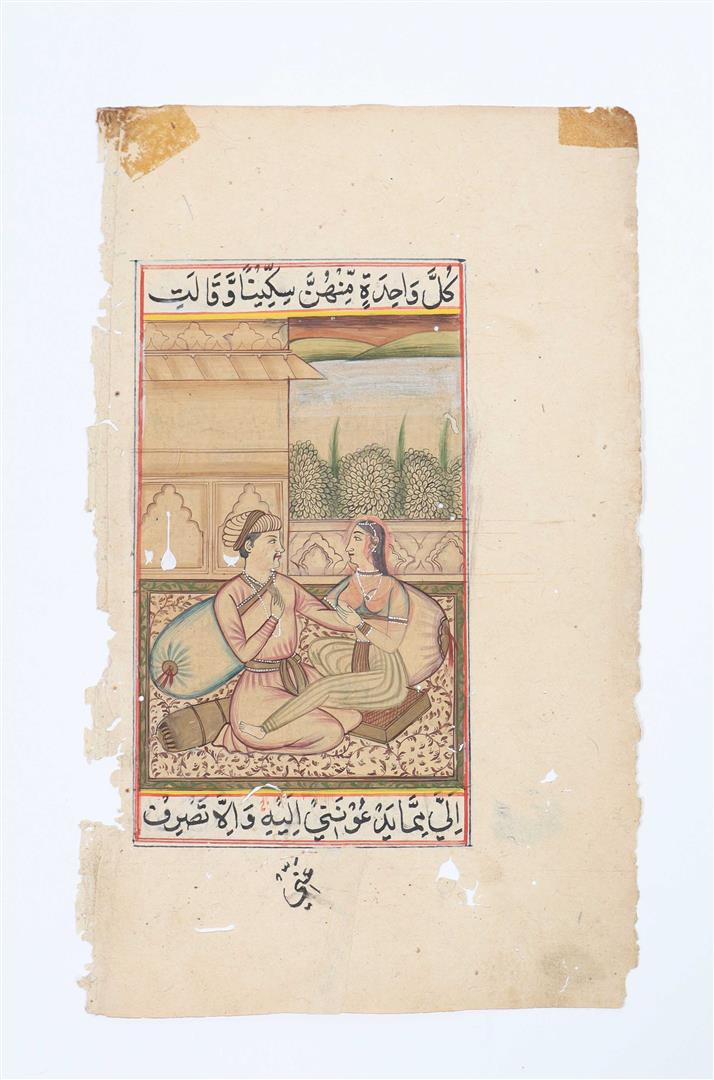 كُلَّ وَاحِدَةٍ مِّنْهُنَّ سِكِّيْنًا وَّقَالَتِ
اِلَيَّ مِمَّا يَدْعُوْنَنِيْ اِلَيْهِ وَاِلَّا تَصْرِفْ
عَنِّيْ